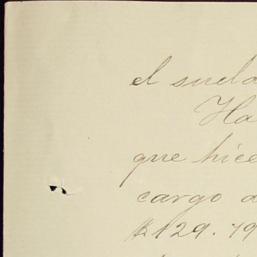 el sueld
Ha
que hice
cargo a
$129.79